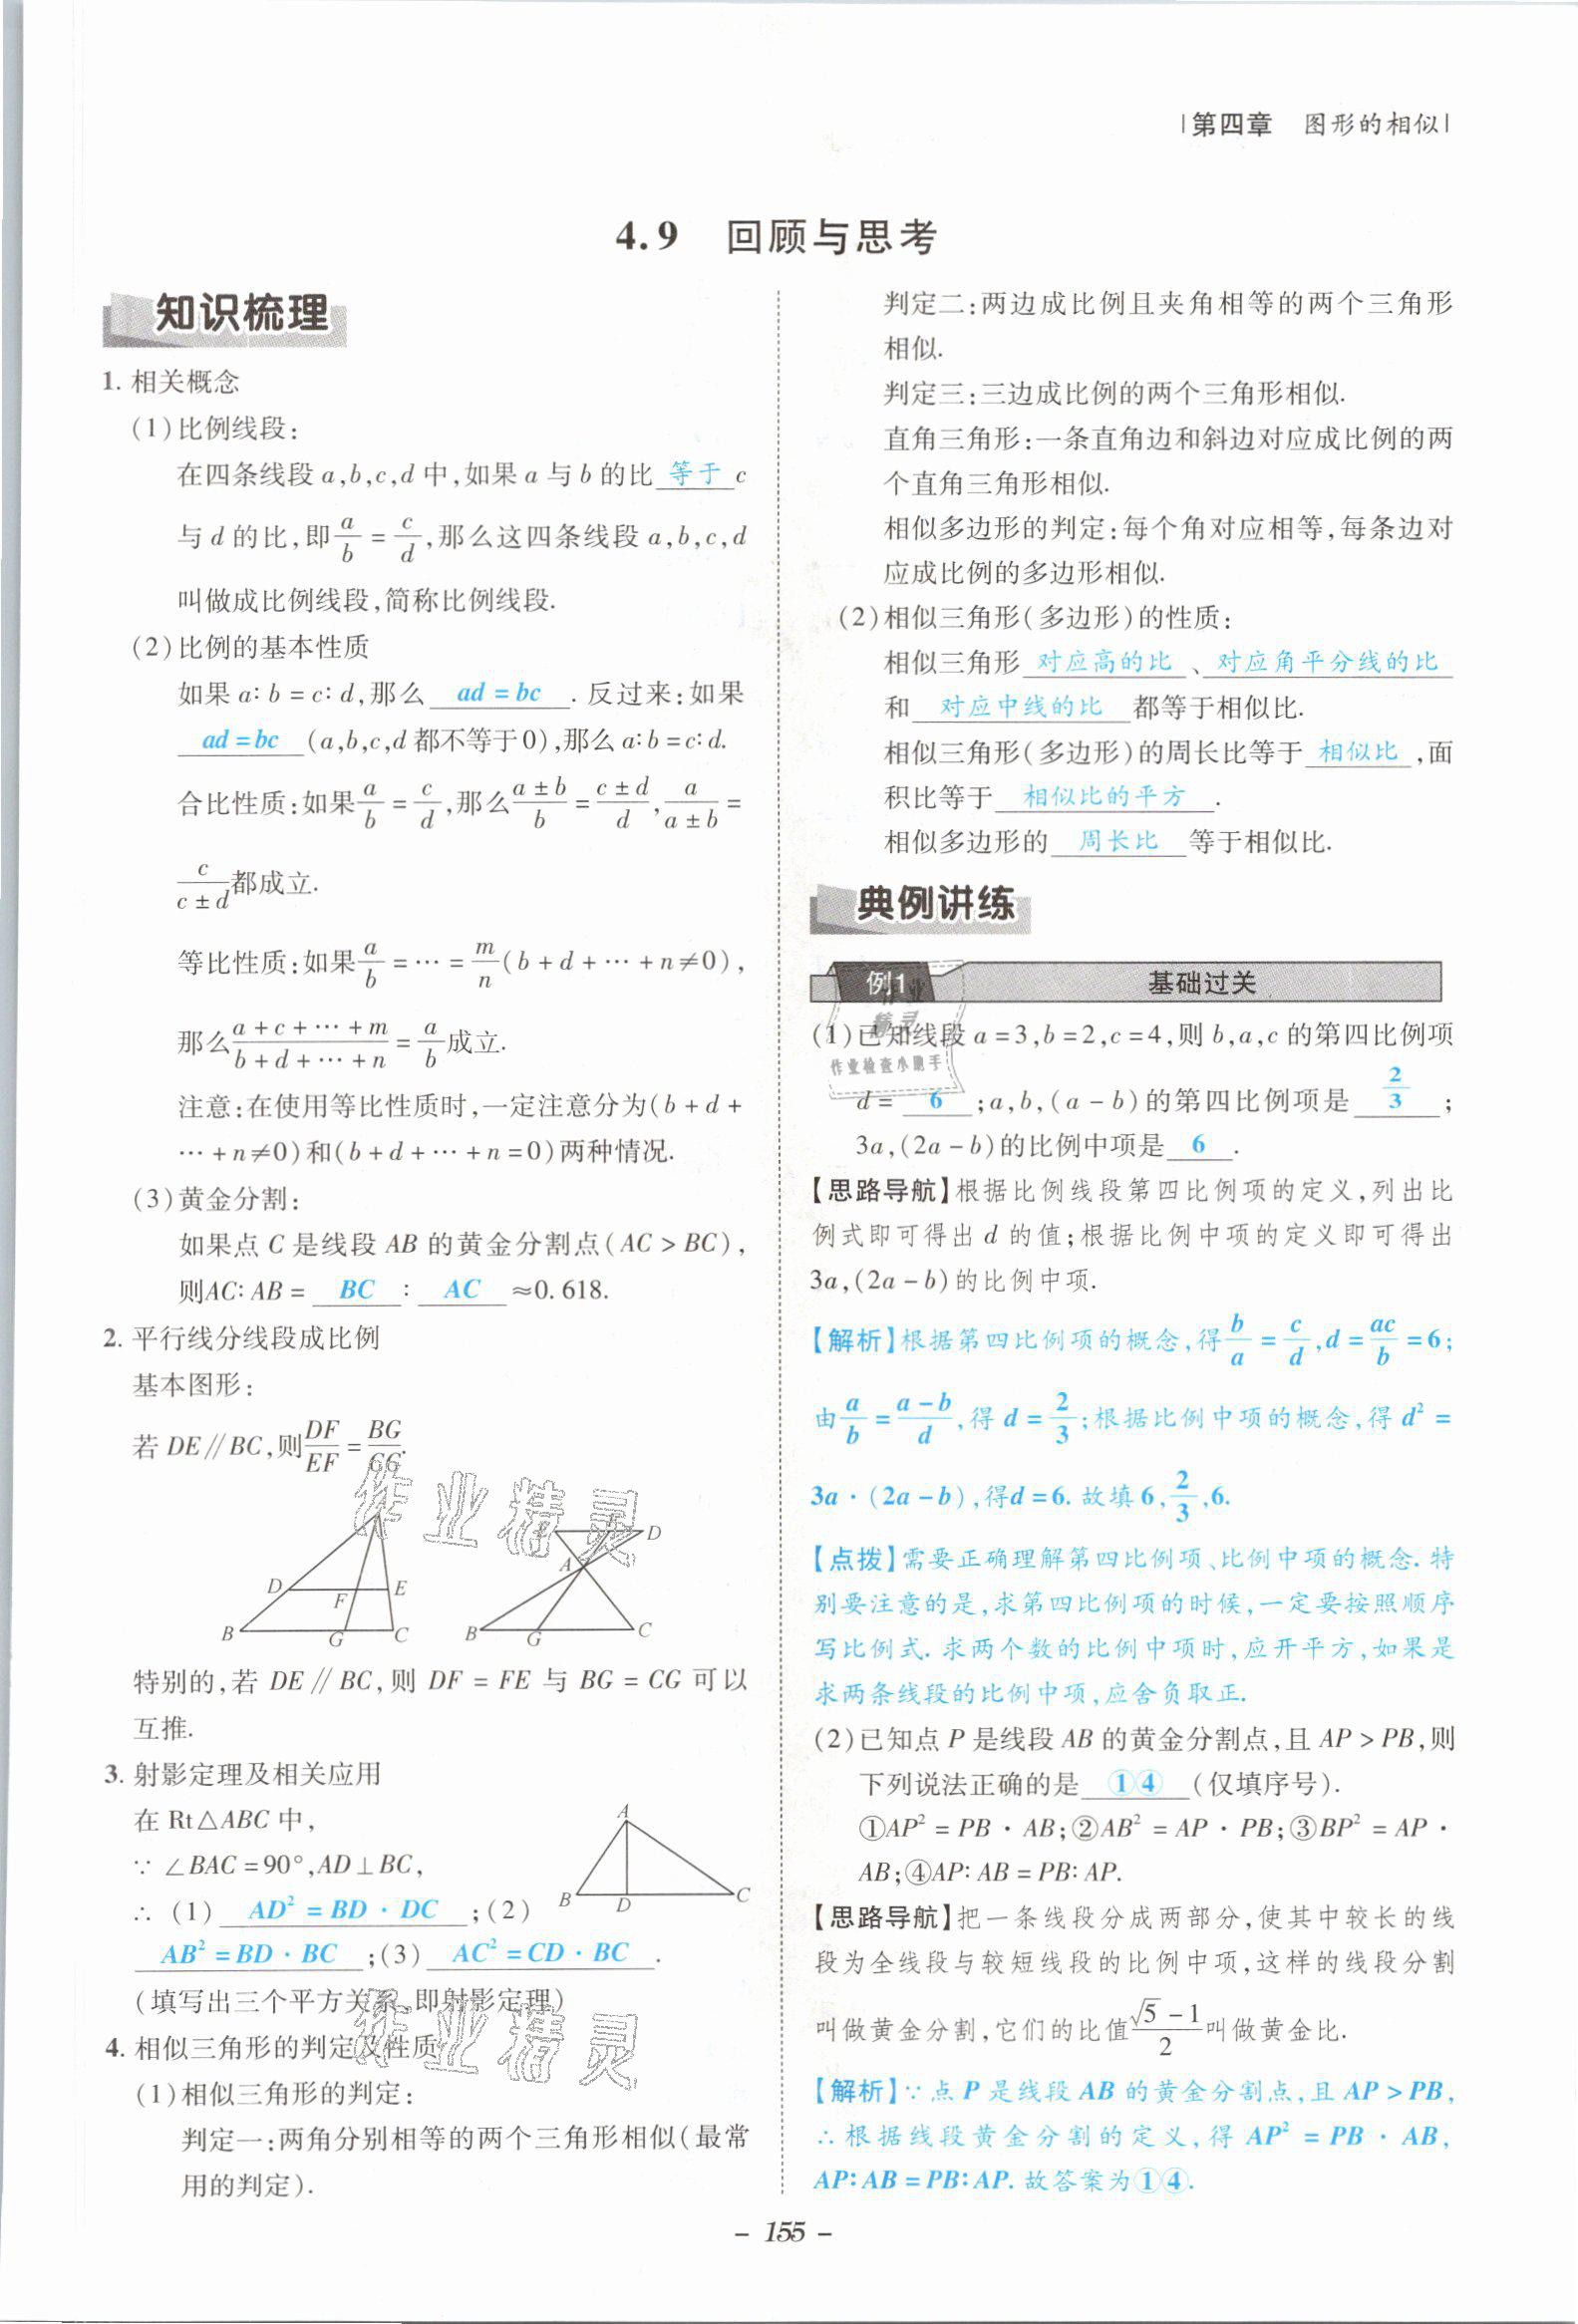 第四章 图形的相似
4.9 回顾与思考
知识梳理
1. 相关概念
(1)比例线段:
在四条线段 a,b,c,d 中,如果 a 与 b 的比 等于 c
与 d 的比,即 a/b = c/d,那么这四条线段 a,b,c,d
叫做成比例线段,简称比例线段.
(2)比例的基本性质
如果 a∶b = c∶d,那么 ad = bc . 反过来:如果
ad = bc (a,b,c,d 都不等于 0),那么 a∶b = c∶d.
合比性质:如果 a/b = c/d,那么 (a ± b)/b = (c ± d)/d, a/(a ± b) =
c/(c ± d) 都成立.
等比性质:如果 a/b = … = m/n (b + d + … + n ≠ 0),
那么 (a + c + … + m)/(b + d + … + n) = a/b 成立.
注意:在使用等比性质时,一定注意分为(b + d +
… + n ≠ 0)和(b + d + … + n = 0)两种情况.
(3)黄金分割:
如果点 C 是线段 AB 的黄金分割点(AC > BC),
则AC∶AB = BC ∶ AC ≈0.618.
2. 平行线分线段成比例
基本图形:
若 DE∥BC,则 DF/EF = BG/CG.
D
F
E
B
G
C
D
A
B
G
C
特别的,若 DE∥BC,则 DF = FE 与 BG = CG 可以
互推.
3. 射影定理及相关应用
在 Rt△ABC 中,
∵ ∠BAC = 90°,AD⊥BC,
∴ (1) AD² = BD · DC ;(2)
AB² = BD · BC ;(3) AC² = CD · BC .
A
B
D
C
(填写出三个平方关系,即射影定理)
4. 相似三角形的判定及性质
(1)相似三角形的判定:
判定一:两角分别相等的两个三角形相似(最常
用的判定).
判定二:两边成比例且夹角相等的两个三角形
相似.
判定三:三边成比例的两个三角形相似.
直角三角形:一条直角边和斜边对应成比例的两
个直角三角形相似.
相似多边形的判定:每个角对应相等,每条边对
应成比例的多边形相似.
(2)相似三角形(多边形)的性质:
相似三角形 对应高的比 、 对应角平分线的比
和 对应中线的比 都等于相似比.
相似三角形(多边形)的周长比等于 相似比 ,面
积比等于 相似比的平方 .
相似多边形的 周长比 等于相似比.
典例讲练
例1 基础过关
(1)已知线段 a = 3,b = 2,c = 4,则 b,a,c 的第四比例项
d = 6 ;a,b,(a - b)的第四比例项是 2/3 ;
3a,(2a - b)的比例中项是 6 .
【思路导航】根据比例线段第四比例项的定义,列出比
例式即可得出 d 的值;根据比例中项的定义即可得出
3a,(2a - b)的比例中项.
【解析】根据第四比例项的概念,得 b/a = c/d, d = ac/b = 6;
由 a/b = (a - b)/d,得 d = 2/3;根据比例中项的概念,得 d² =
3a · (2a - b),得d = 6. 故填 6, 2/3, 6.
【点拨】需要正确理解第四比例项、比例中项的概念. 特
别要注意的是,求第四比例项的时候,一定要按照顺序
写比例式. 求两个数的比例中项时,应开平方,如果是
求两条线段的比例中项,应舍负取正.
(2)已知点 P 是线段 AB 的黄金分割点,且 AP > PB,则
下列说法正确的是 ①④ (仅填序号).
①AP² = PB · AB;②AB² = AP · PB;③BP² = AP ·
AB;④AP∶AB = PB∶AP.
【思路导航】把一条线段分成两部分,使其中较长的线
段为全线段与较短线段的比例中项,这样的线段分割
叫做黄金分割,它们的比值 (√5 - 1)/2 叫做黄金比.
【解析】∵点 P 是线段 AB 的黄金分割点,且 AP > PB,
∴根据线段黄金分割的定义,得 AP² = PB · AB,
AP∶AB = PB∶AP. 故答案为①④.
- 155 -
作业精灵
作业精灵
作业精灵
作业检查小助手